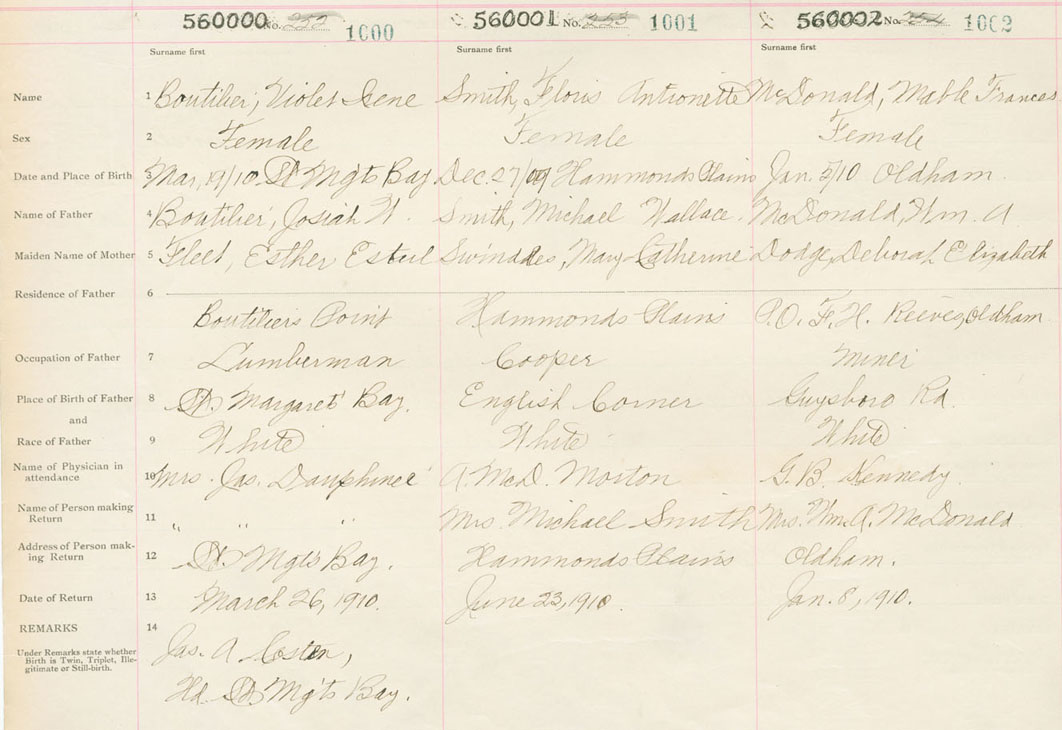 560000 No. 252 1000 560001 No. 253 1001 560002 No. 254 1002
Surname first Surname first Surname first
Name 1 Boutilier, Violet Irene Smith, Floris Antionette McDonald, Mable Frances
Sex 2 Female Female Female
Date and Place of Birth 3 Mar, 19/10 St Mgts Bay Dec. 27/09 Hammonds Plains Jan. 5/10 Oldham.
Name of Father 4 Boutilier, Josiah W. Smith, Michael Wallace. McDonald, Wm. A
Maiden Name of Mother 5 Esther Mary Catherine Dodge, Deborah Elizabeth
Residence of Father 6
Boutiliers Point Hammonds Plains P.O. F. H. Reeves, Oldham
Occupation of Father 7 Lumberman Cooper Miner
Place of Birth of Father 8 St. Margarets Bay. English Corner Guysboro Rd.
and
Race of Father 9 White White White
Name of Physician in
attendance 10 Mrs. Jas. Dauphinee A. McD. Morton G. B. Kennedy.
Name of Person making
Return 11 " " " Mrs. Michael Smith Mrs. Wm. A. McDonald
Address of Person mak-
ing Return 12 St. Mgts Bay. Hammonds Plains Oldham.
Date of Return 13 March 26, 1910. June 23, 1910. Jan. 8, 1910.
REMARKS 14
Under Remarks state whether
Birth is Twin, Triplet, Ille-
gitimate or Still-birth.
Jas. A
Hd. St Mgts Bay.